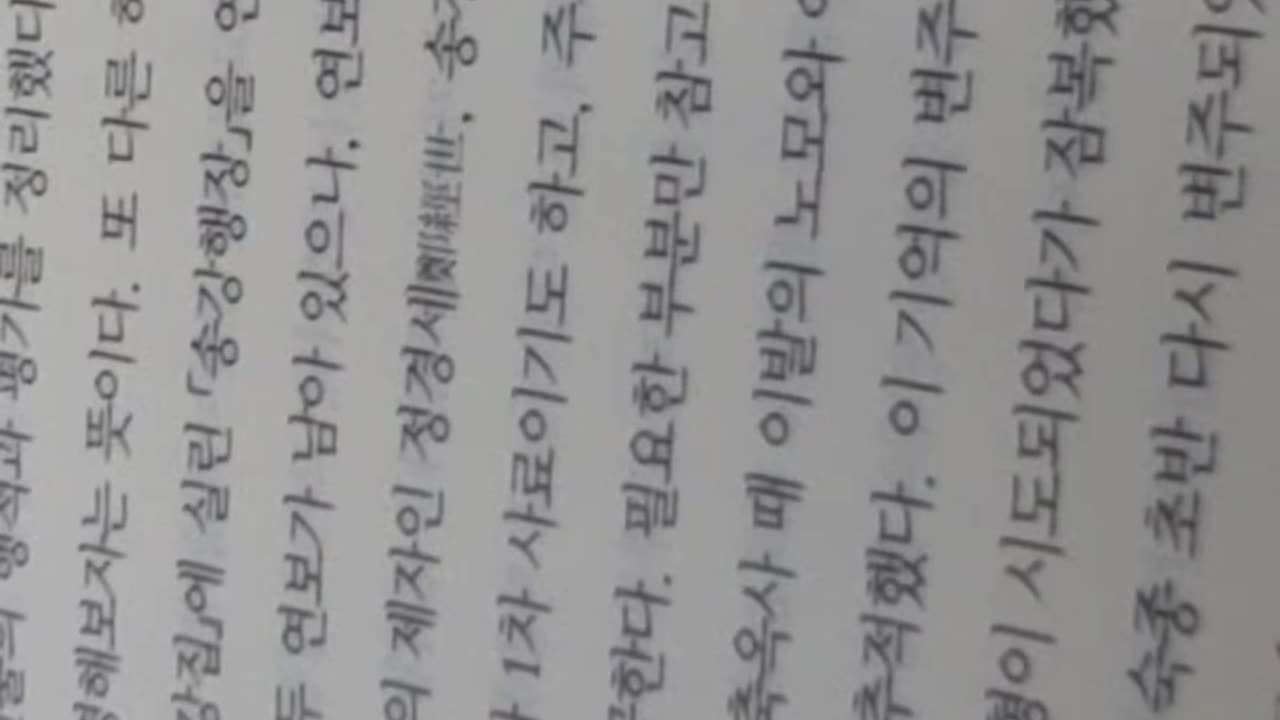 행적과 평가를 정리했다
해보자는 뜻이다. 또 다른
강집』에 실린 「송강행장」을
두 연보가 남아 있으나, 연보
의 제자인 정경세鄭經世, 송
1차 사료이기도 하고, 주
한다. 필요한 부분만 참고
축옥사 때 이발의 노모와
추적했다. 이 기억의 변주
형이 시도되었다가 잠복했
숙종 초반 다시 변주되었